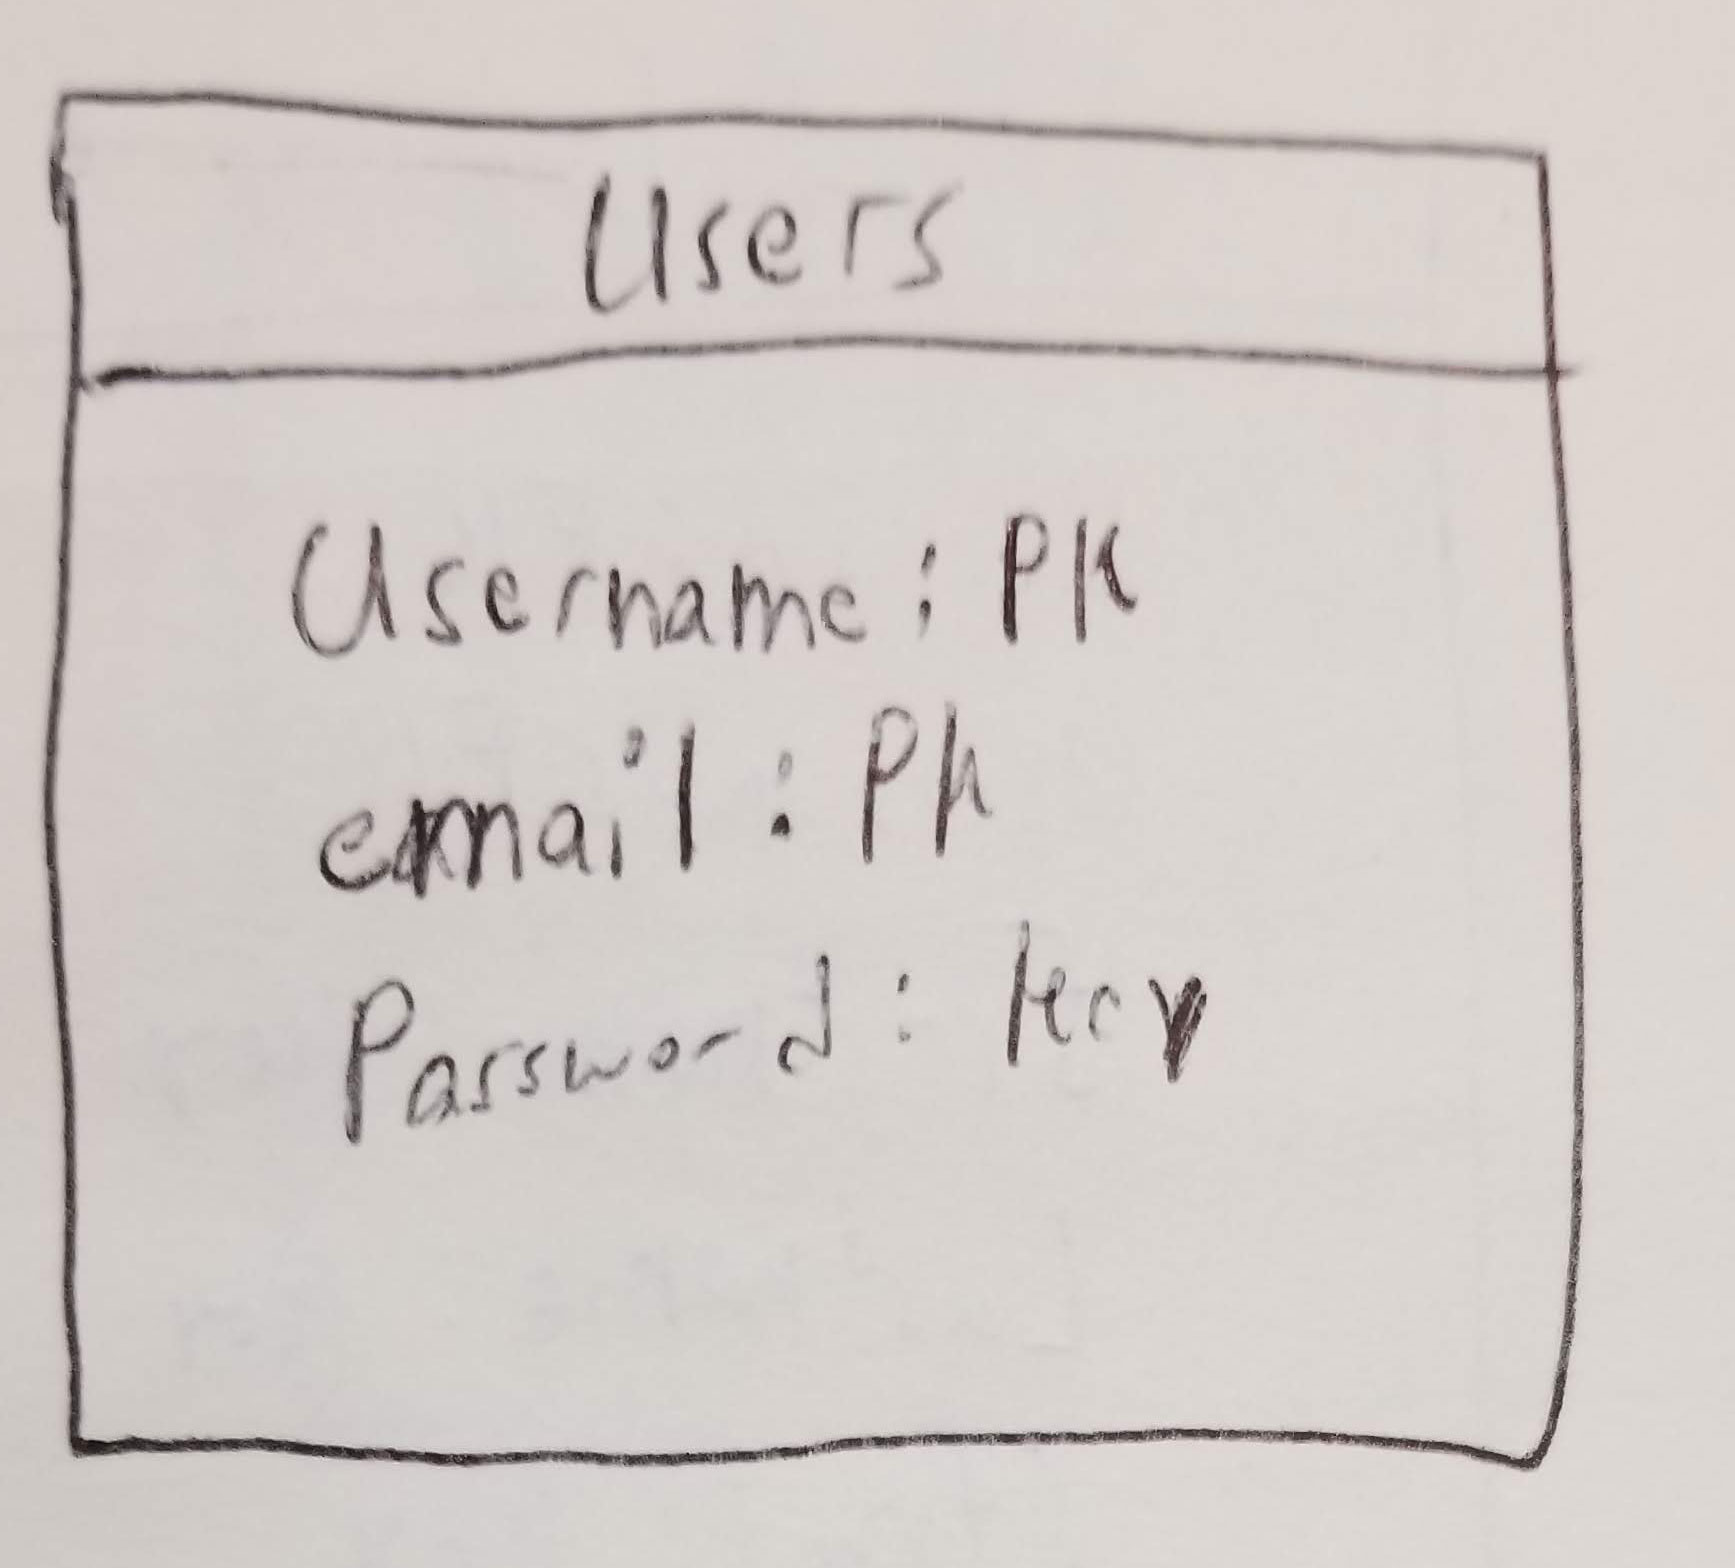 Users
Username: PK
email: PK
Password: Key